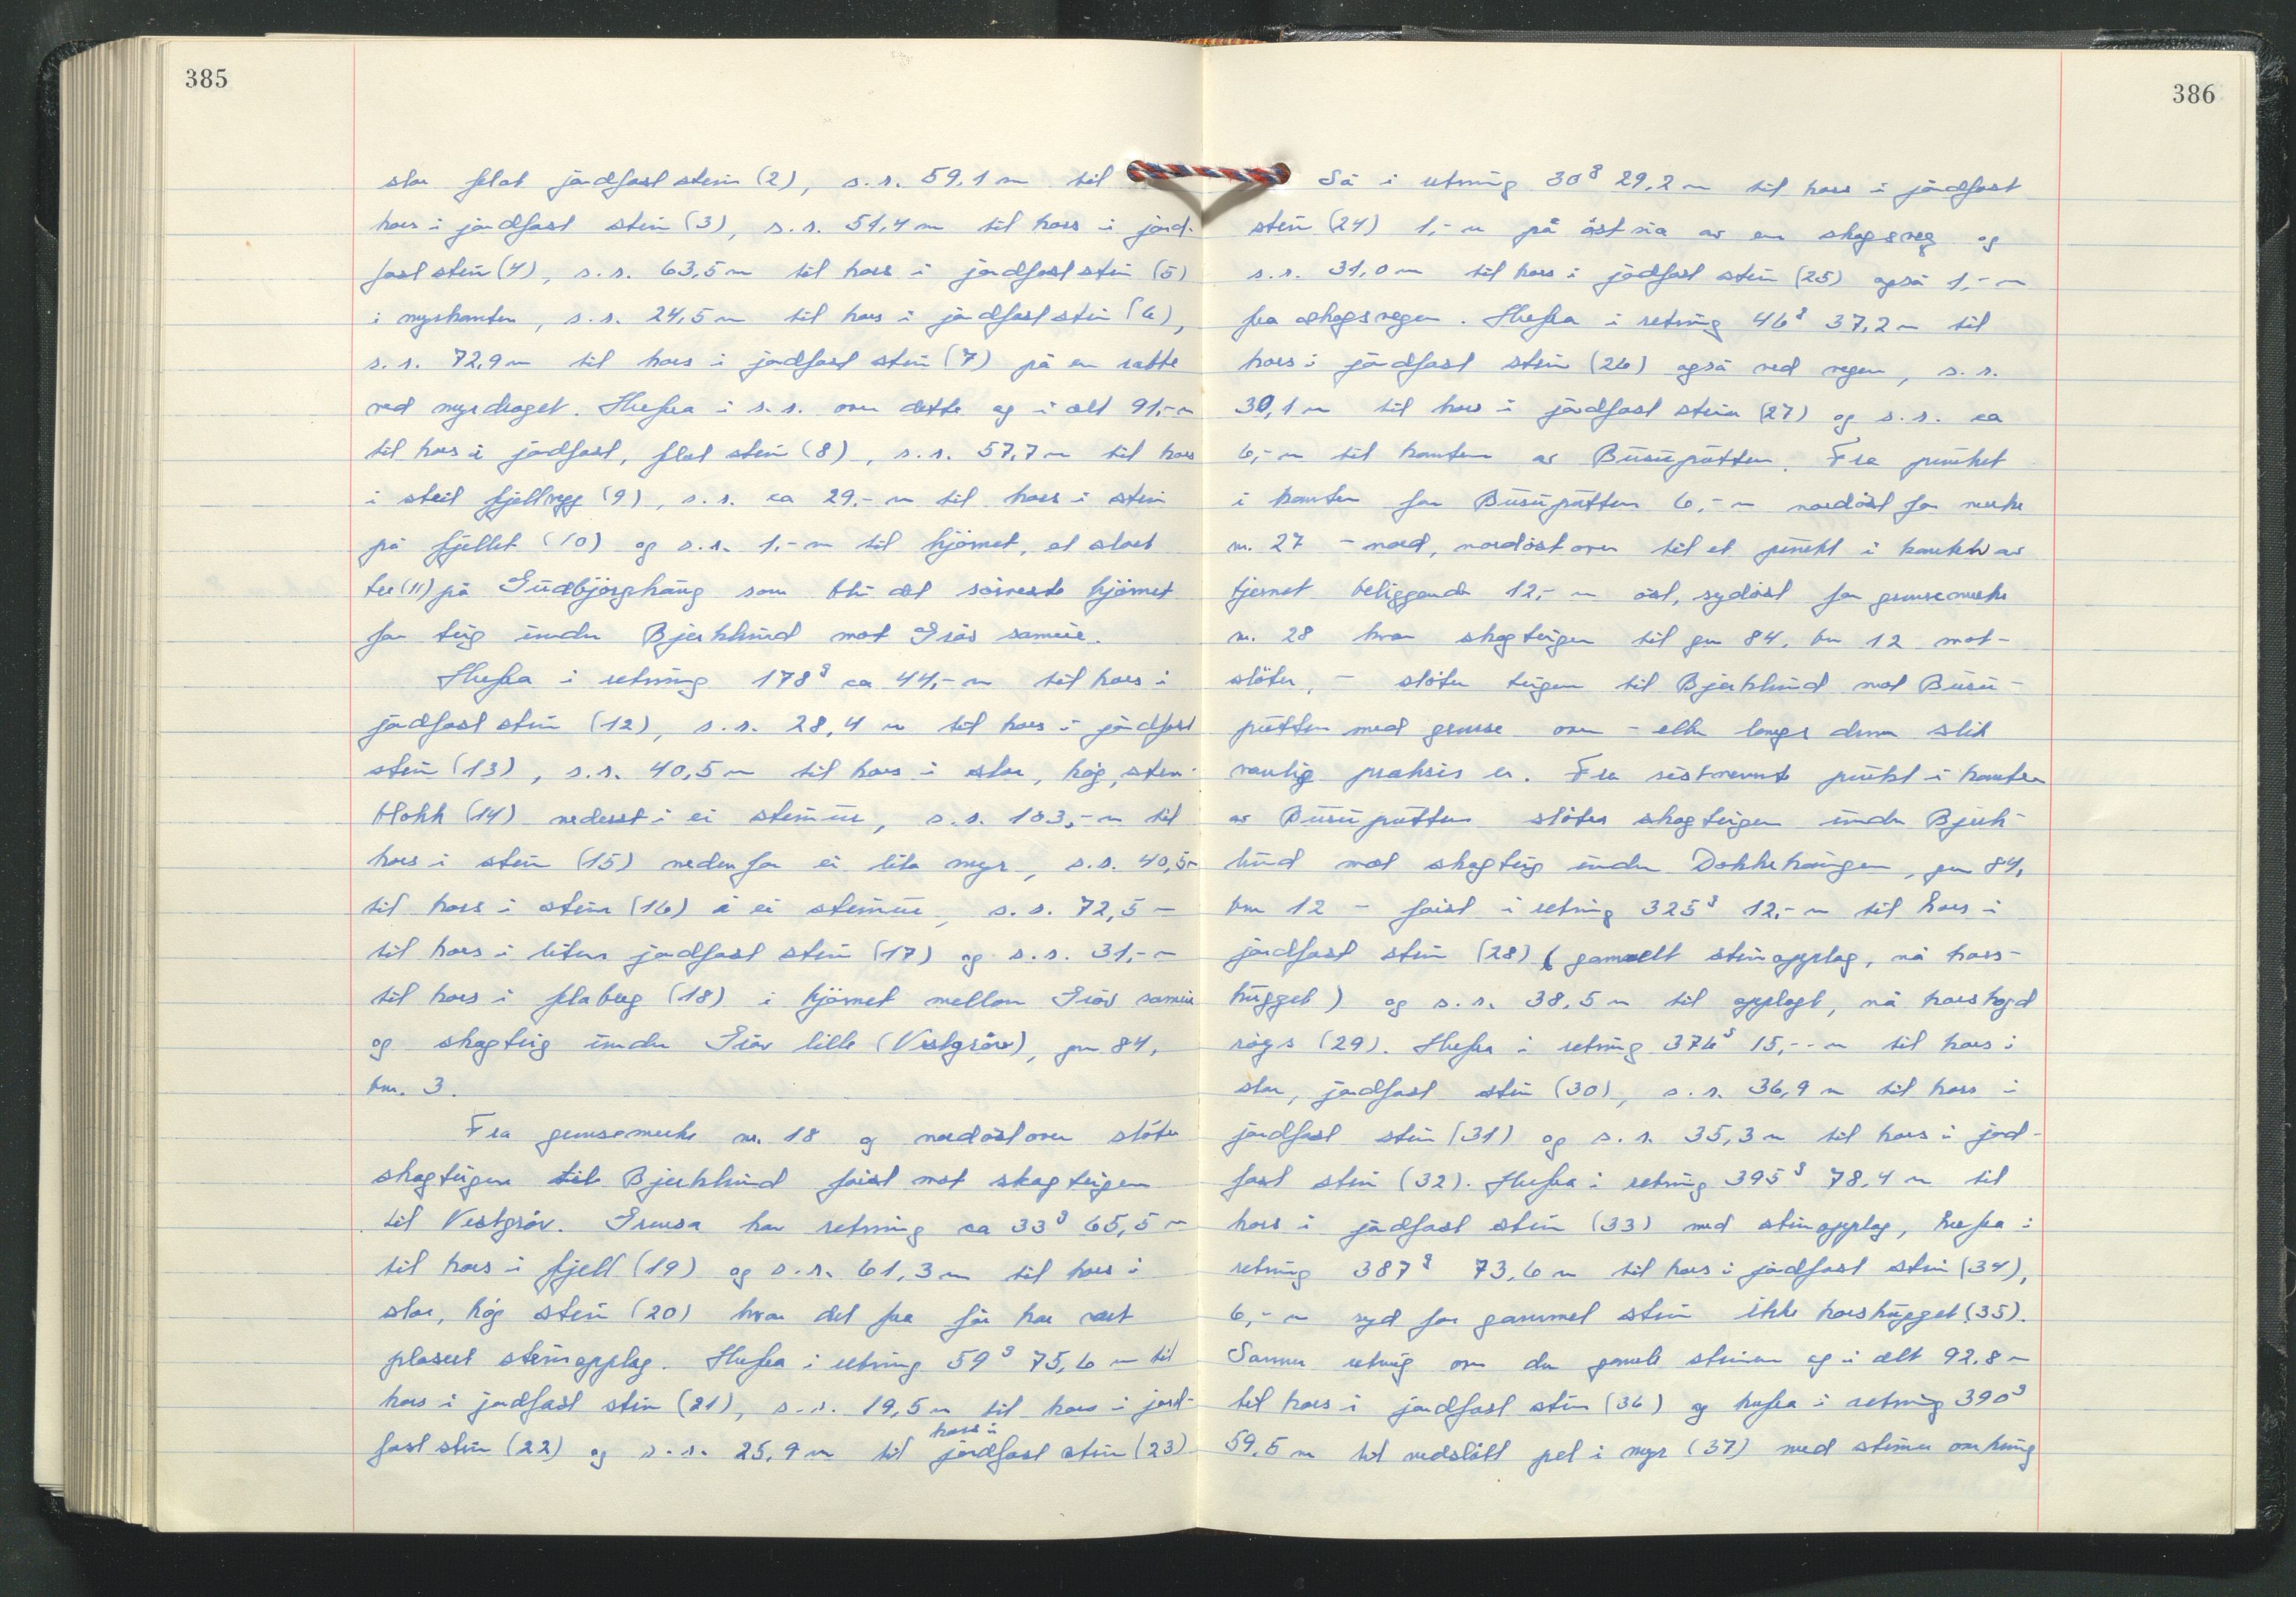 385
stor flat jordfast stein (2), s.r. 59,1 m til
kors i jordfast stein (3), s.r. 51,4 m til kors i jord-
fast stein (4), s.r. 63,5 m til kors i jordfast stein (5)
i myrkanten, s.r. 24,5 m til kors i jordfast stein (6),
s.r. 72,9 m til kors i jordfast stein (7) på en rabbe
ved myrdraget. Herfra i s.r. over dette og i alt 91,- m
til kors i jordfast, flat stein (8), s.r. 57,7 m til kors
i steil fjellvegg (9), s.r. ca 29,- m til kors i stein
på fjellet (10) og s.r. 1,- m til hjörnet, et stort
tre (11) på Gudbjörghaug som blir det sörveste hjörnet
for teig under Bjerklund mot Gräv sameie.
Herfra i retning 178g ca 44,- m til kors i
jordfast stein (12), s.r. 28,4 m til kors i jordfast
stein (13), s.r. 40,5 m til kors i stor, hög, stein-
blokk (14) nederst i ei steinur, s.r. 103,- m til
kors i stein (15) nedenfor ei lita myr, s.r. 40,5 m
til kors i stein (16) i ei steinur, s.r. 72,5 -
til kors i liten jordfast stein (17) og s.r. 31,- m
til kors i flaberg (18) i hjörnet mellom Gräv sameie
og skogteig under Gräv lille (Vestgräv), gnr 84,
bnr. 3.
Fra grensemerke nr. 18 og nordöstover stöter
skogteigen til Bjerklund först mot skogteigen
til Vestgräv. Grensa har retning ca 33g 65,5 m
til kors i fjell (19) og s.r. 61,3 m til kors i
stor, hög stein (20) hvor det fra för har vært
plasert steinopplag. Herfra i retning 59g 75,6 m til
kors i jordfast stein (21), s.r. 19,5 m til kors i jord-
fast stein (22) og s.r. 25,9 m til kors i jordfast stein (23)
386
Så i retning 30g 29,2 m til kors i jordfast
stein (24) 1,- m på östsia av en skogsveg og
s.r. 31,0 m til kors i jordfast stein (25) også 1,- m
fra skogsvegen. Herfra i retning 46g 37,2 m til
kors i jordfast stein (26) også ved vegen, s.r.
30,1 m til kors i jordfast stein (27) og s.r. ca
6,- m til kanten av Busuputten. Fra punktet
i kanten for Busuputten 6,- m nordöst for merke
nr. 27 - nord, nordöstover til et punkt i kanten av
tjernet beliggende 12,- m öst, sydöst for grensemerke
nr. 28 hvor skogteigen til gnr 84, bnr 12 mot-
stöter, - stöter teigen til Bjerklund mot Busu-
putten med grense over - eller langs denne slik
vanlig praksis er. Fra sistnevnte punkt i kanten
av Busuputten stöter skogteigen under Bjerk-
lund mot skogteig under Dokkehaugen, gnr 84,
bnr 12 - först i retning 325g 12,- m til kors i
jordfast stein (28) (gammelt steinopplag, nå kors-
hugget) og s.r. 38,5 m til opplagt, nå korshogd
röys (29). Herfra i retning 376g 15,-- m til kors i
stor, jordfast stein (30), s.r. 36,9 m til kors i
jordfast stein (31) og s.r. 35,3 m til kors i jord-
fast stein (32). Herfra i retning 395g 78,4 m til
kors i jordfast stein (33) med steinopplag, herfra i
retning 387g 73,6 m til kors i jordfast stein (34),
6,- m syd for gammel stein ikke korshugget (35).
Samme retning over den gamle steinen og i alt 92,8 m
til kors i jordfast stein (36) og herfra i retning 390g
59,5 m til nedslått pel i myr (37) med steiner omkring